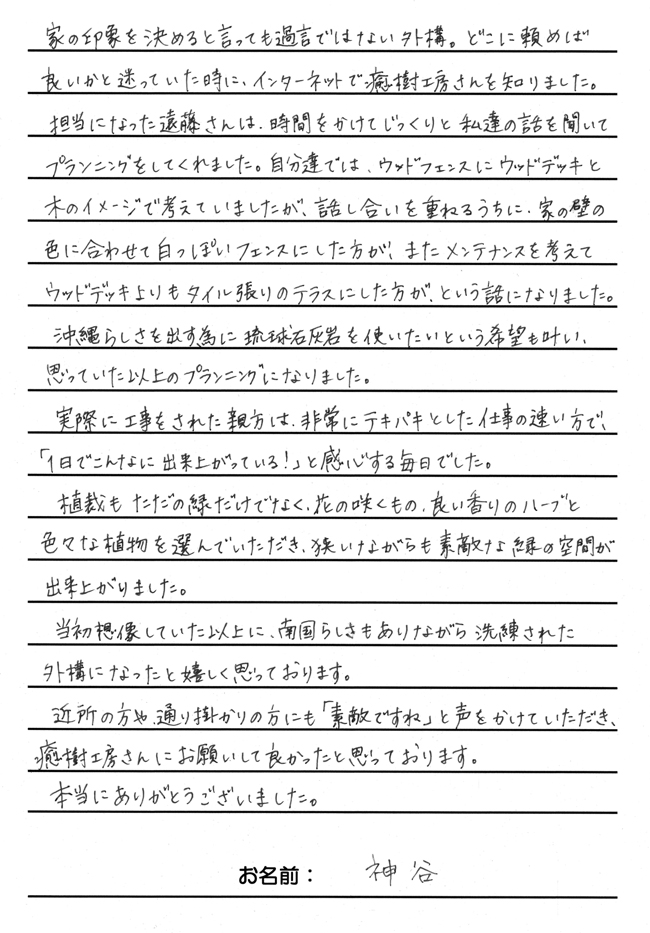 家の印象を決めると言っても過言ではない外構。どこに頼めば
良いかと迷っていた時に、インターネットで癒樹工房さんを知りました。
担当になった遠藤さんは、時間をかけてじっくりと私達の話を聞いて
プランニングをしてくれました。自分達では、ウッドフェンスにウッドデッキと
木のイメージで考えていましたが、話し合いを重ねるうちに、家の壁の
色に合わせて白っぽいフェンスにした方が、またメンテナンスを考えて
ウッドデッキよりもタイル張りのテラスにした方が、という話になりました。
沖縄らしさを出す為に琉球石灰岩を使いたいという希望も叶い、
思っていた以上のプランニングになりました。
実際に工事をされた親方は、非常にテキパキとした仕事の速い方で、
「1日でこんなに出来上がっている!」と感心する毎日でした。
植裁もただの緑だけでなく、花の咲くもの、良い香りのハーブと
色々な植物を選んでいただき、狭いながらも素敵な緑の空間が
出来上がりました。
当初想像していた以上に、南国らしさもありながら洗練された
外構になったと嬉しく思っております。
近所の方や、通り掛かりの方にも「素敵ですね」と声をかけていただき、
癒樹工房さんにお願いして良かったと思っております。
本当にありがとうございました。
お名前: 神谷